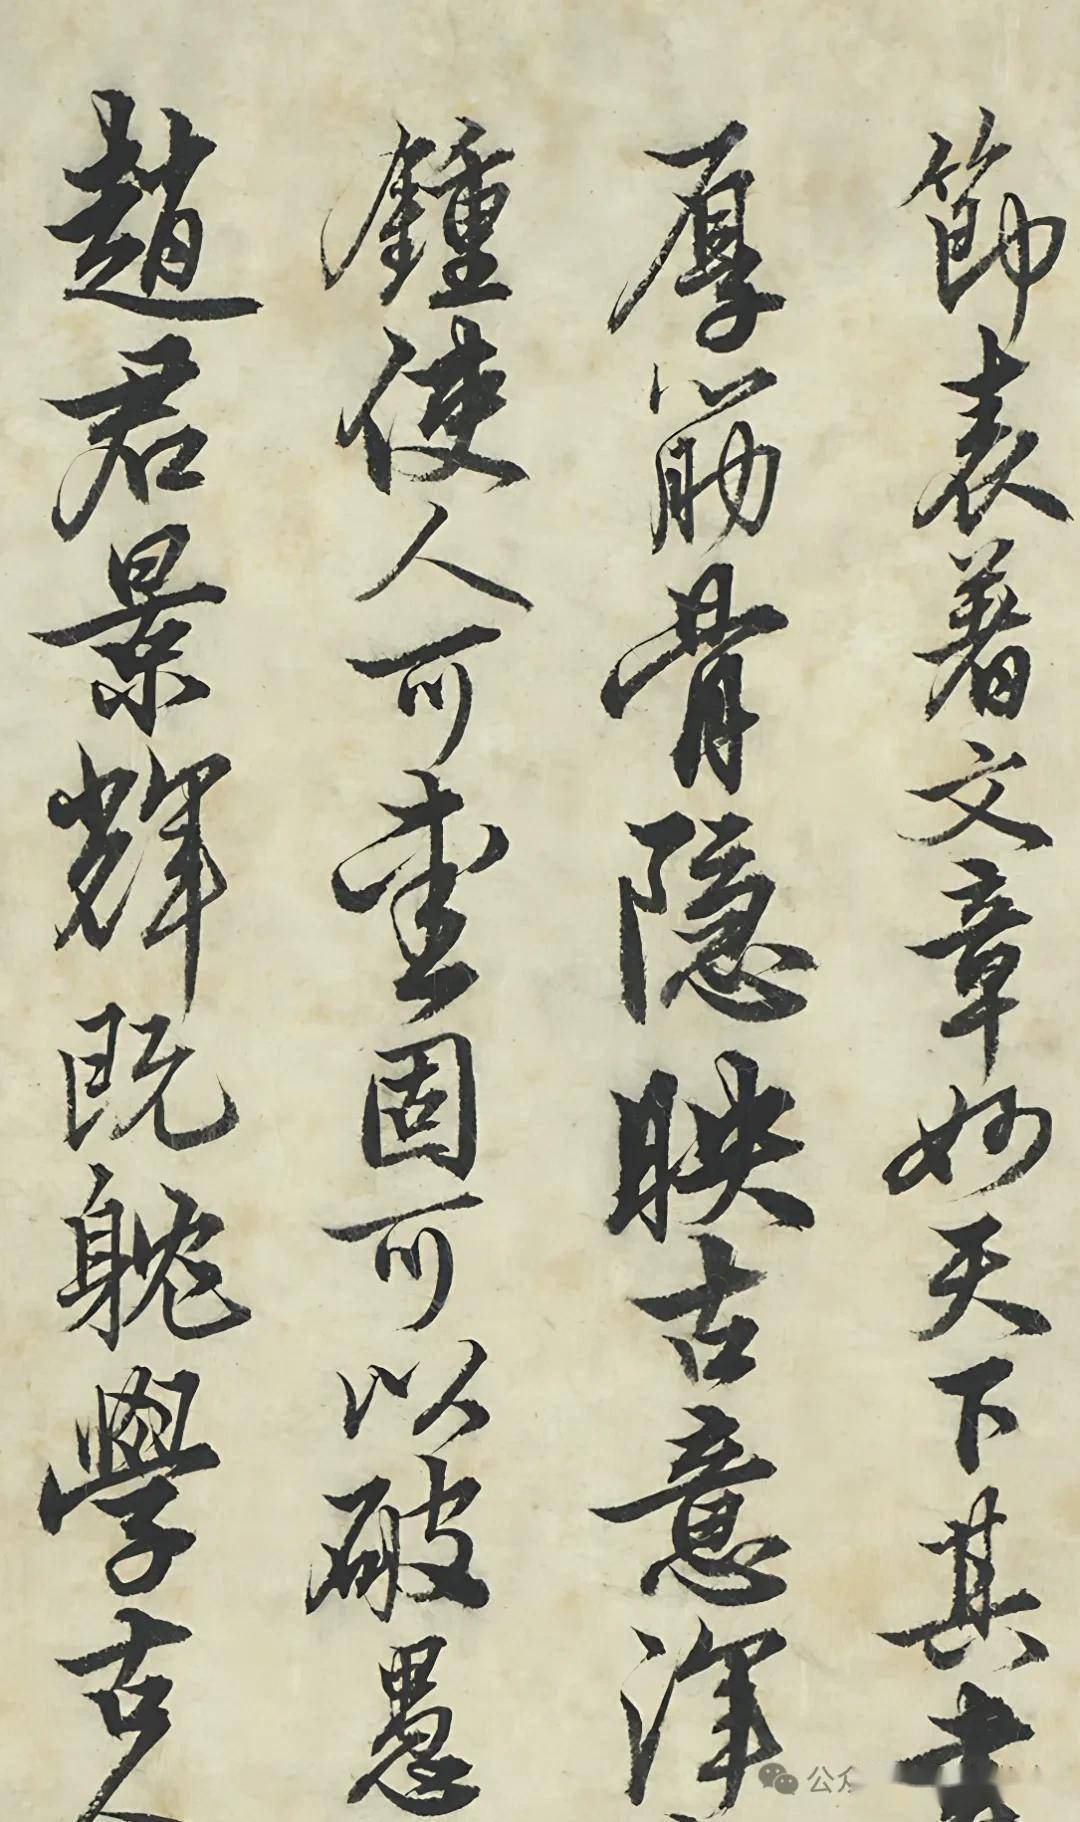 節表著文章妙天下其書
厚筋骨隐映古意渾
鍾使人可重固可以破愚
趙君景輝既躭學古
公众